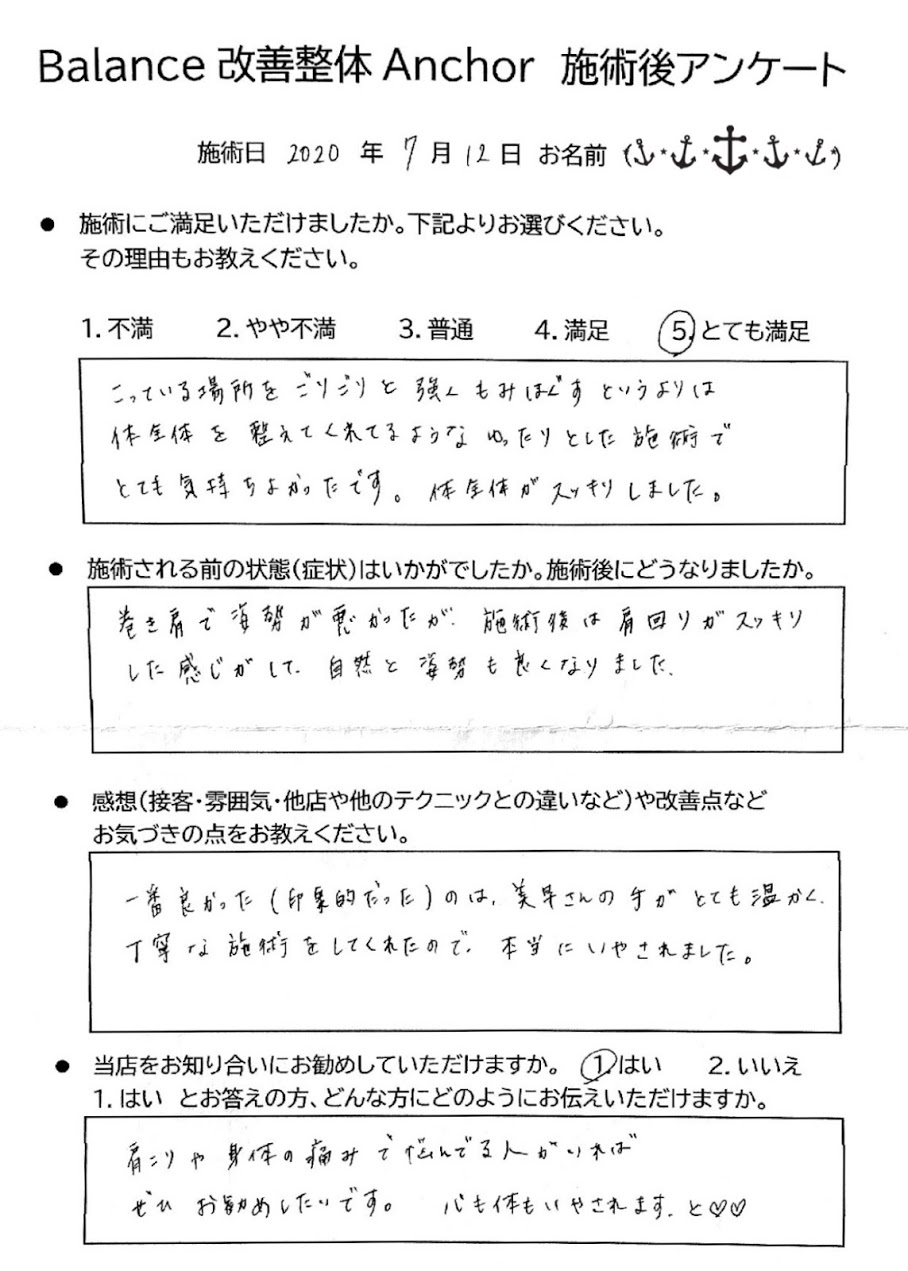 Balance 改善整体 Anchor 施術後アンケート
施術日 2020 年 7 月 12 日 お名前 ( )
● 施術にご満足いただけましたか。下記よりお選びください。
その理由もお教えください。
1. 不満 2. やや不満 3. 普通 4. 満足 5. とても満足
こっている場所をごりごりと強くもみほぐすというよりは
体全体を整えてくれてるようなゆったりとした施術で
とても気持ちよかったです。体全体がスッキリしました。
● 施術される前の状態(症状)はいかがでしたか。施術後にどうなりましたか。
巻き肩で姿勢が悪かったが、施術後は肩回りがスッキリ
した感じがして、自然と姿勢も良くなりました。
● 感想(接客・雰囲気・他店や他のテクニックとの違いなど)や改善点など
お気づきの点をお教えください。
一番良かった(印象的だった)のは、さんの手がとても温かく、
丁寧な施術をしてくれたので、本当にいやされました。
● 当店をお知り合いにお勧めしていただけますか。 1. はい 2. いいえ
1. はい とお答えの方、どんな方にどのようにお伝えいただけますか。
肩こりや身体の痛みで悩んでる人がいれば
ぜひお勧めしたいです。 心も体もいやされます。と♡♡